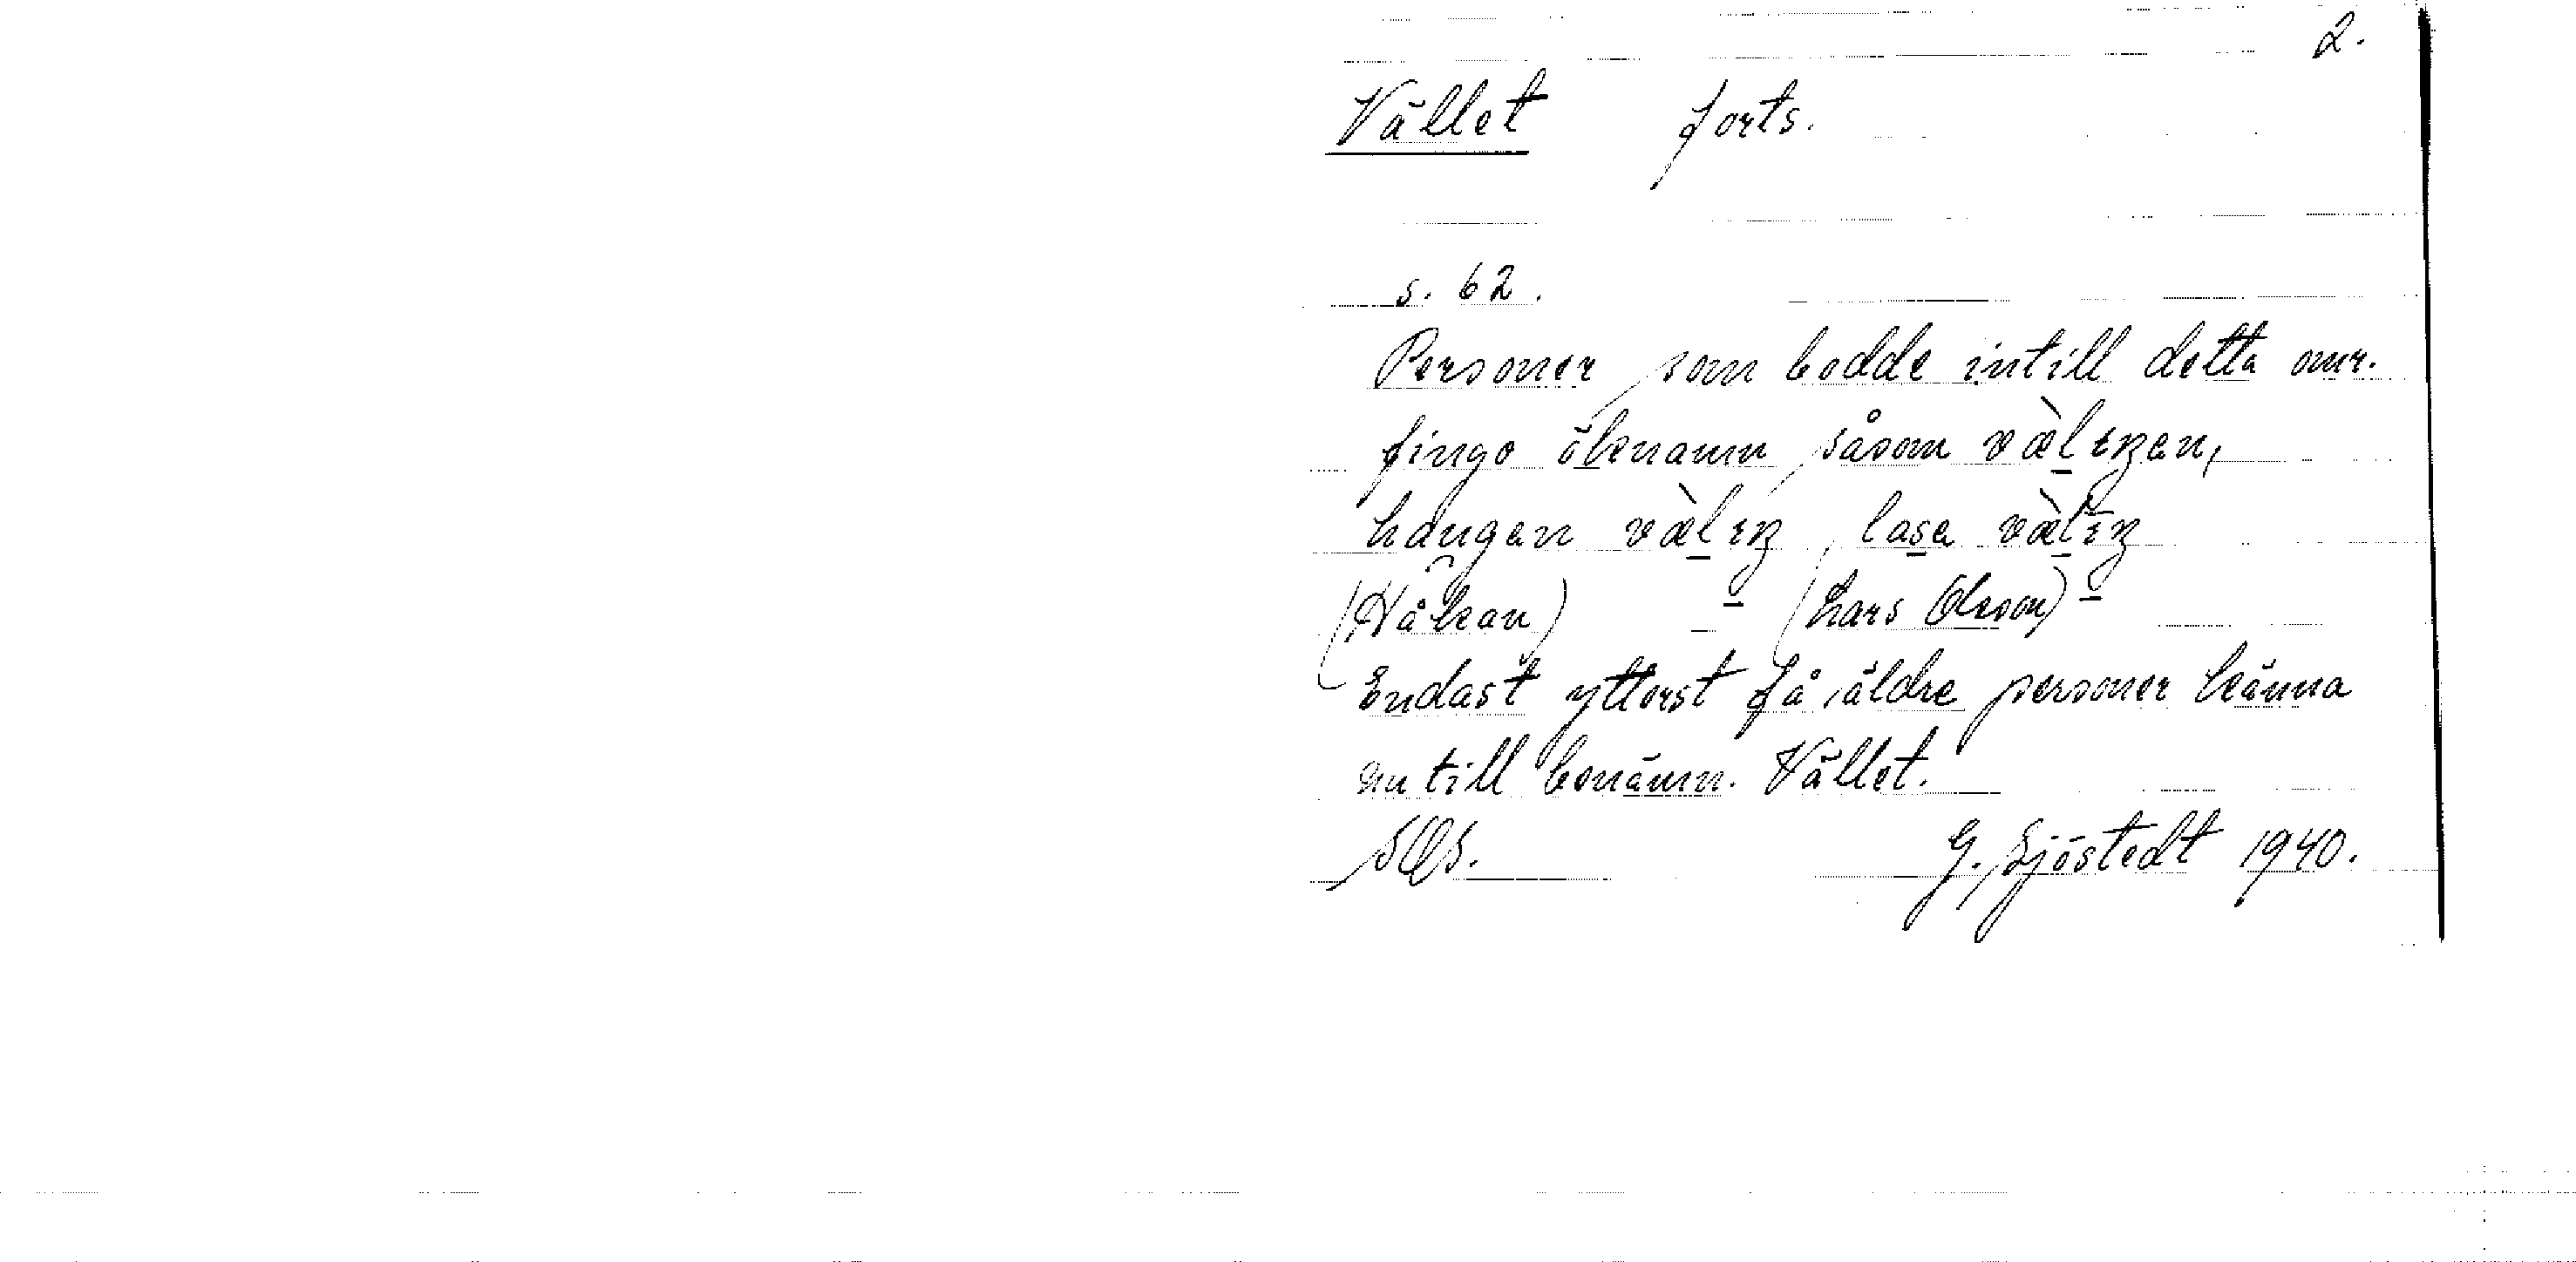 2.
Vållet forts.
s. 62.
Personer, som bodde intill detta omr.
fingo öknamn, såsom
haugan lasa
(Håkan) (Lars Olsson)
Endast ytterst få äldre personer känna
nu till benämn. Vållet.
G. Sjöstedt 1940.